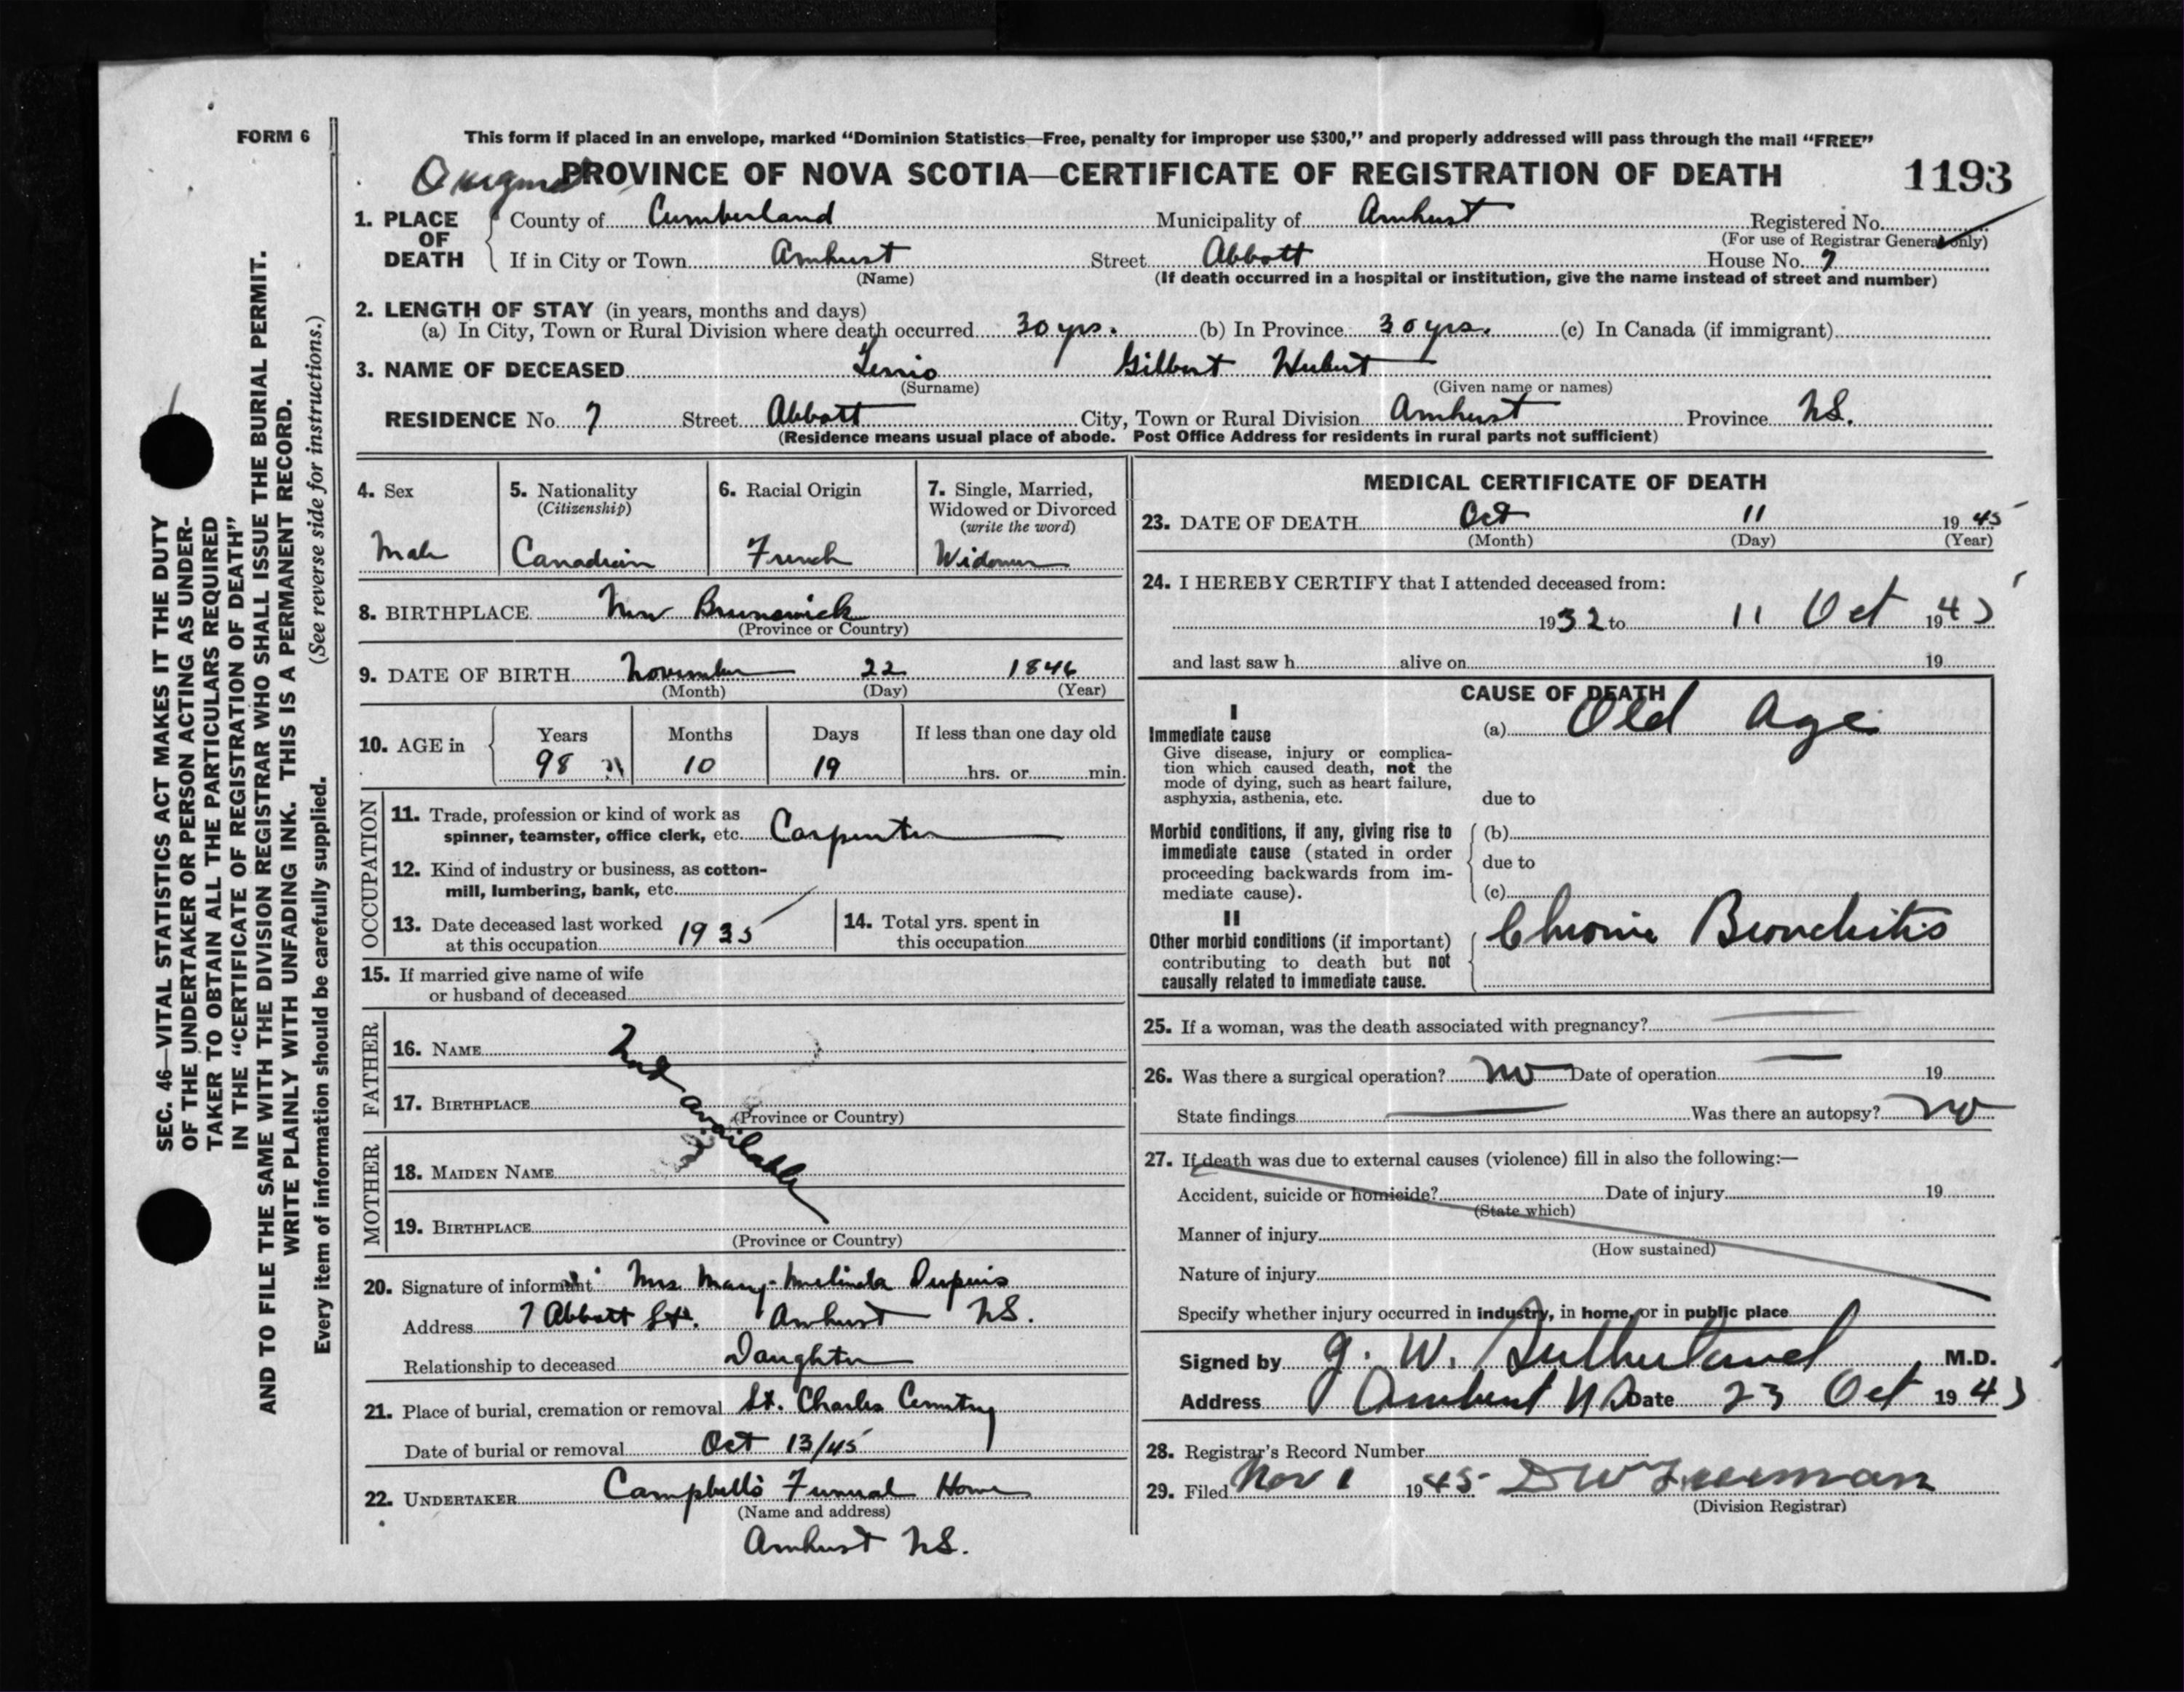 FORM 6
This form if placed in an envelope, marked “Dominion Statistics—Free, penalty for improper use $300,” and properly addressed will pass through the mail “FREE”
PROVINCE OF NOVA SCOTIA—CERTIFICATE OF REGISTRATION OF DEATH 1193
1. PLACE OF DEATH
County of Cumberland Municipality of Amherst Registered No.
(For use of Registrar General only)
If in City or Town Amherst Street Abbott House No. 7
(Name) (If death occurred in a hospital or institution, give the name instead of street and number)
2. LENGTH OF STAY (in years, months and days)
(a) In City, Town or Rural Division where death occurred 30 yrs. (b) In Province 30 yrs. (c) In Canada (if immigrant)
3. NAME OF DECEASED Gilbert Hubert
(Surname) (Given name or names)
RESIDENCE No. 7 Street Abbott City, Town or Rural Division Amherst Province N.S.
(Residence means usual place of abode. Post Office Address for residents in rural parts not sufficient)
4. Sex
Male
5. Nationality
(Citizenship)
Canadian
6. Racial Origin
French
7. Single, Married,
Widowed or Divorced
(write the word)
Widower
8. BIRTHPLACE New Brunswick
(Province or Country)
9. DATE OF BIRTH November 22 1846
(Month) (Day) (Year)
10. AGE in
Years Months Days If less than one day old
98 10 19 hrs. or min.
OCCUPATION
11. Trade, profession or kind of work as
spinner, teamster, office clerk, etc. Carpenter
12. Kind of industry or business, as cotton-
mill, lumbering, bank, etc.
13. Date deceased last worked
at this occupation 1935
14. Total yrs. spent in
this occupation
15. If married give name of wife
or husband of deceased
FATHER
16. NAME Not available
17. BIRTHPLACE
(Province or Country)
MOTHER
18. MAIDEN NAME
19. BIRTHPLACE
(Province or Country)
20. Signature of informant Mrs. Mary Melinda Dupuis
Address 7 Abbott St. Amherst N.S.
Relationship to deceased Daughter
21. Place of burial, cremation or removal St. Charles Cemetry
Date of burial or removal Oct 13/45
22. UNDERTAKER Campbell's Funeral Home
(Name and address)
Amherst N.S.
MEDICAL CERTIFICATE OF DEATH
23. DATE OF DEATH Oct 11 1945
(Month) (Day) (Year)
24. I HEREBY CERTIFY that I attended deceased from:
1932 to 11 Oct 1945
and last saw h alive on 19
CAUSE OF DEATH
I
Immediate cause
Give disease, injury or complica-
tion which caused death, not the
mode of dying, such as heart failure,
asphyxia, asthenia, etc.
(a) Old Age
due to
Morbid conditions, if any, giving rise to
immediate cause (stated in order
proceeding backwards from im-
mediate cause).
(b)
due to
(c)
II
Other morbid conditions (if important)
contributing to death but not
causally related to immediate cause.
Chronic Bronchitis
25. If a woman, was the death associated with pregnancy?
26. Was there a surgical operation? No Date of operation 19
State findings Was there an autopsy? No
27. If death was due to external causes (violence) fill in also the following:—
Accident, suicide or homicide? Date of injury 19
(State which)
Manner of injury
(How sustained)
Nature of injury
Specify whether injury occurred in industry, in home, or in public place
Signed by J. W. Sutherland M.D.
Address Amherst N S Date 23 Oct 1945
28. Registrar's Record Number
29. Filed Nov 1 1945
(Division Registrar)
SEC. 46—VITAL STATISTICS ACT MAKES IT THE DUTY
OF THE UNDERTAKER OR PERSON ACTING AS UNDER-
TAKER TO OBTAIN ALL THE PARTICULARS REQUIRED
IN THE “CERTIFICATE OF REGISTRATION OF DEATH”
AND TO FILE THE SAME WITH THE DIVISION REGISTRAR WHO SHALL ISSUE THE BURIAL PERMIT.
WRITE PLAINLY WITH UNFADING INK. THIS IS A PERMANENT RECORD.
Every item of information should be carefully supplied. (See reverse side for instructions.)